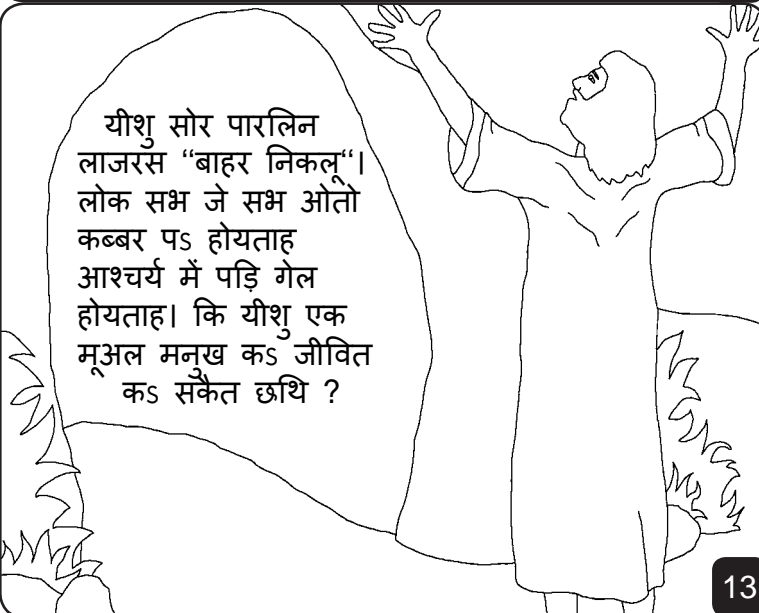 यीशु सोर पारलिन
लाजरस “बाहर निकलू“।
लोक सभ जे सभ ओतो
कब्बर पऽ होयताह
आश्चर्य में पड़ि गेल
होयताह। कि यीशु एक
मूअल मनुख कऽ जीवित
कऽ सकैत छथि ?
13